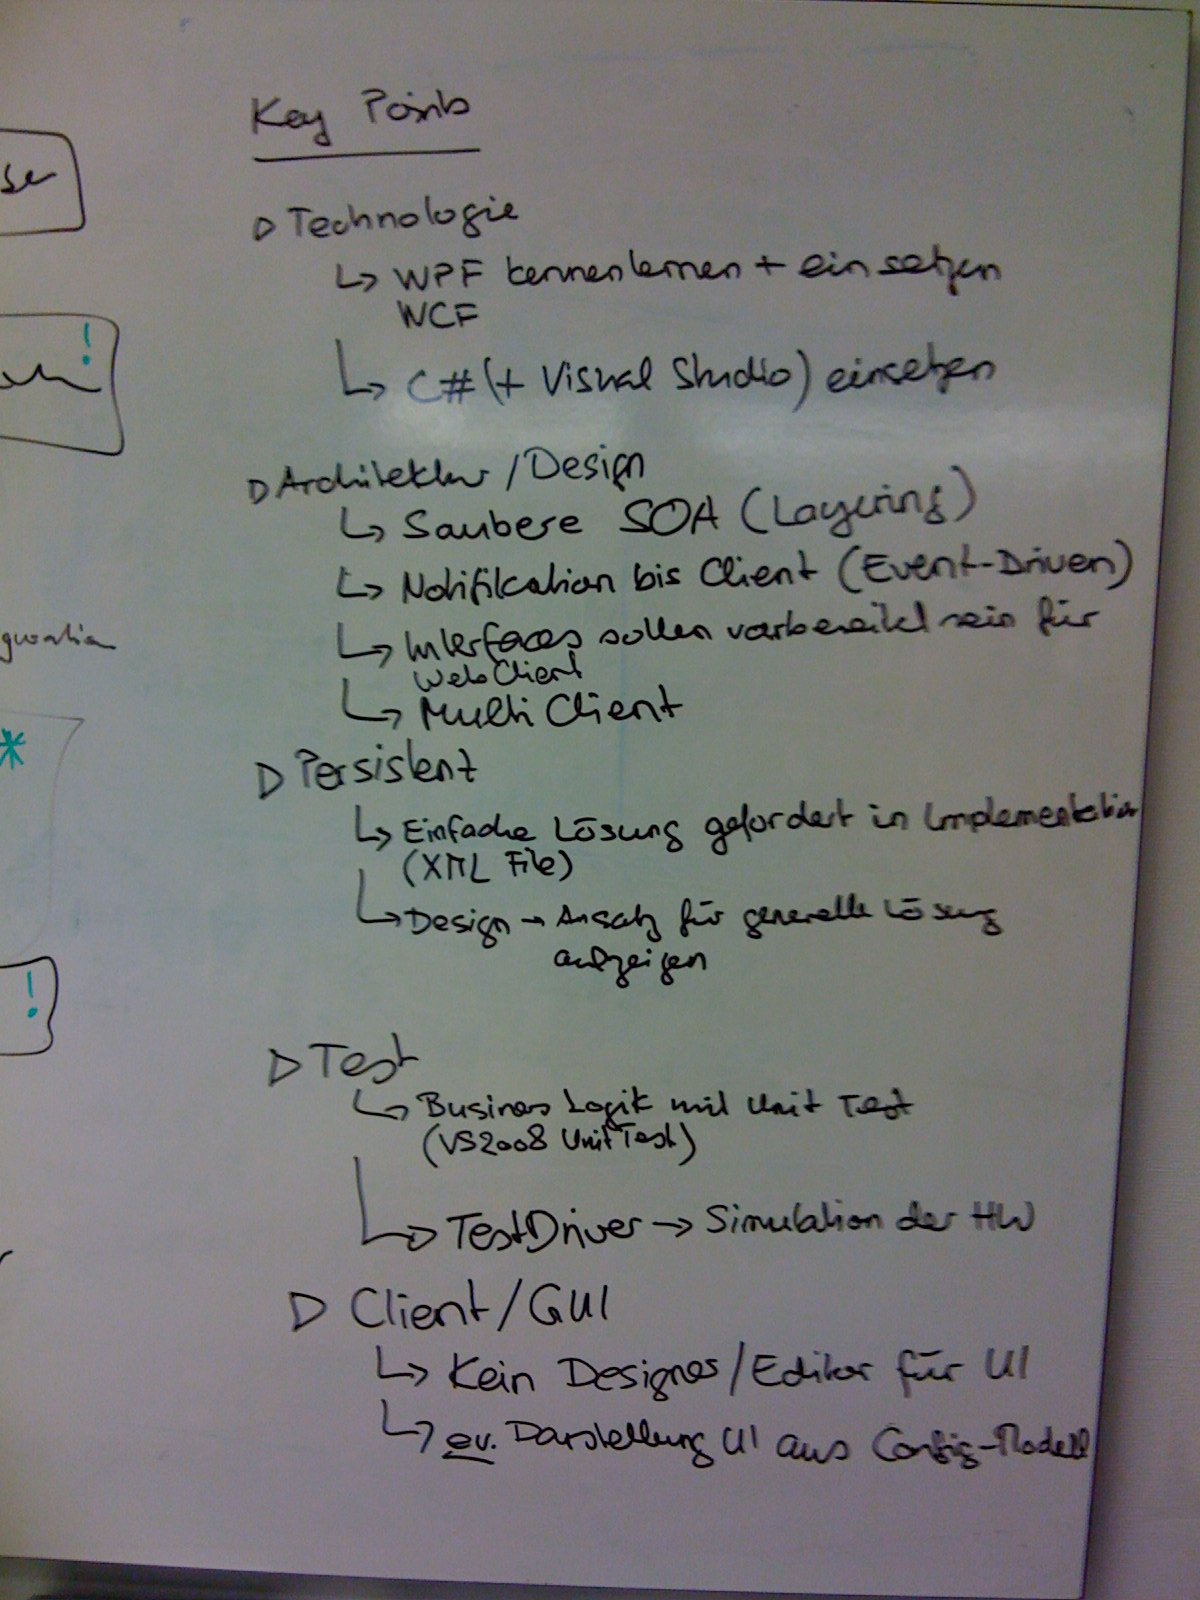 Key Points
Technologie
WPF kennenlernen + einsetzen
WCF
C# (+ Visual Studio) einsetzen
Architektur / Design
Saubere SOA (Layering)
Notifikation bis Client (Event-Driven)
Interfaces sollen vorbereitet sein für
Web Client
Multi Client
Persistent
Einfache Lösung gefordert in Implementation
(XML File)
Design → Ansatz für generelle Lösung
aufzeigen
Test
Business Logik mit Unit Test
(VS2008 Unit Test)
TestDriver → Simulation der HW
Client/GUI
Kein Designer/Editor für UI
ev. Darstellung UI aus Config-Modell
!
*
!